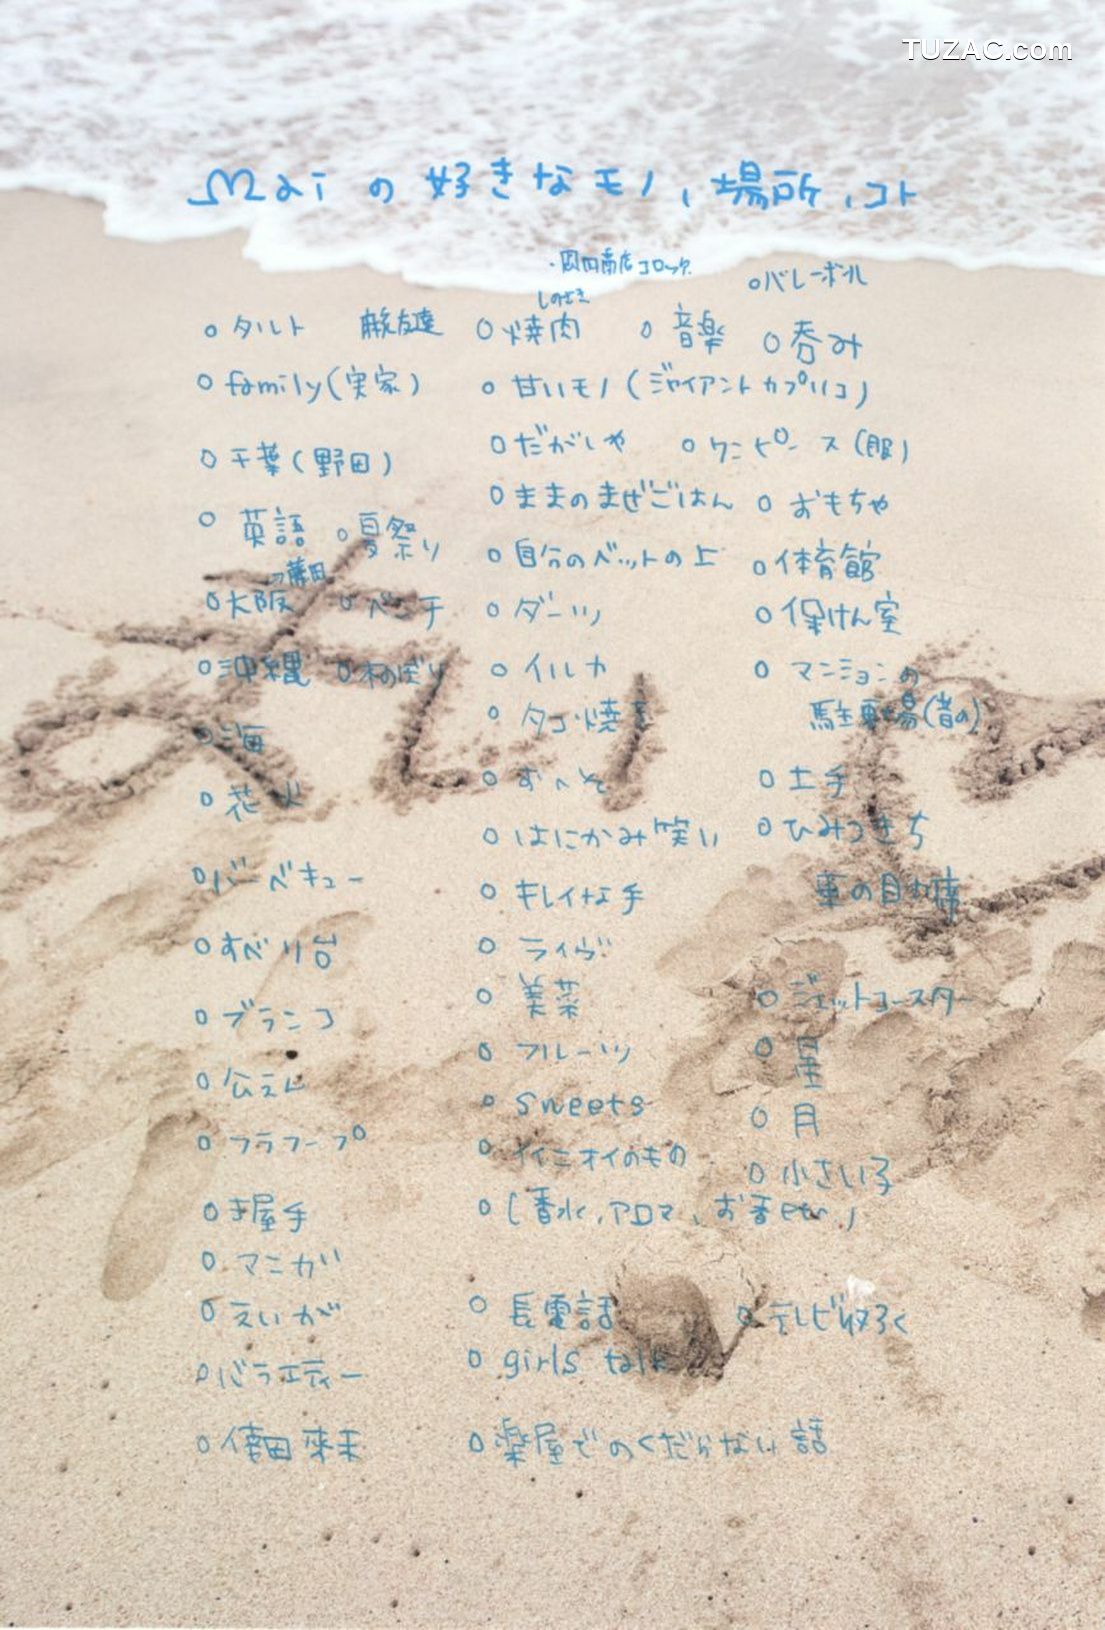 TUZAC.com
Maiの好きなモノ、場所、コト
・岡田商店コロッケ
○バレーボール
○タルト 親友達 ○焼肉 ○音楽 ○呑み
○family(実家) ○甘いモノ(ジャイアントカプリコ)
○だがしや ○ワンピース(服)
○千葉(野田)
○ままのまぜごはん ○おもちゃ
○英語 ○夏祭り
○自分のベットの上 ○体育館
○大阪 ○ベンチ ○ダーツ ○保けん室
○沖縄 ○木のぼり ○イルカ ○マンションの
駐車場(昔の)
○タコ焼き
○海
○花火 ○おへそ ○土手
○はにかみ笑い ○ひみつきち
○バーベキュー ○キレイな手 車の助手席
○すべり台 ○ライヴ
○美菜 ○ジェットコースター
○ブランコ
○フルーツ ○星
○公えん ○sweets ○月
○フラフープ ○イイニオイのもの ○小さい子
○(香水、アロマ、お香etc.)
○握手
○マンガ
○えいが ○長電話 ○テレビ収ろく
○バラエティー ○girls talk
○倖田來未 ○楽屋でのくだらない話